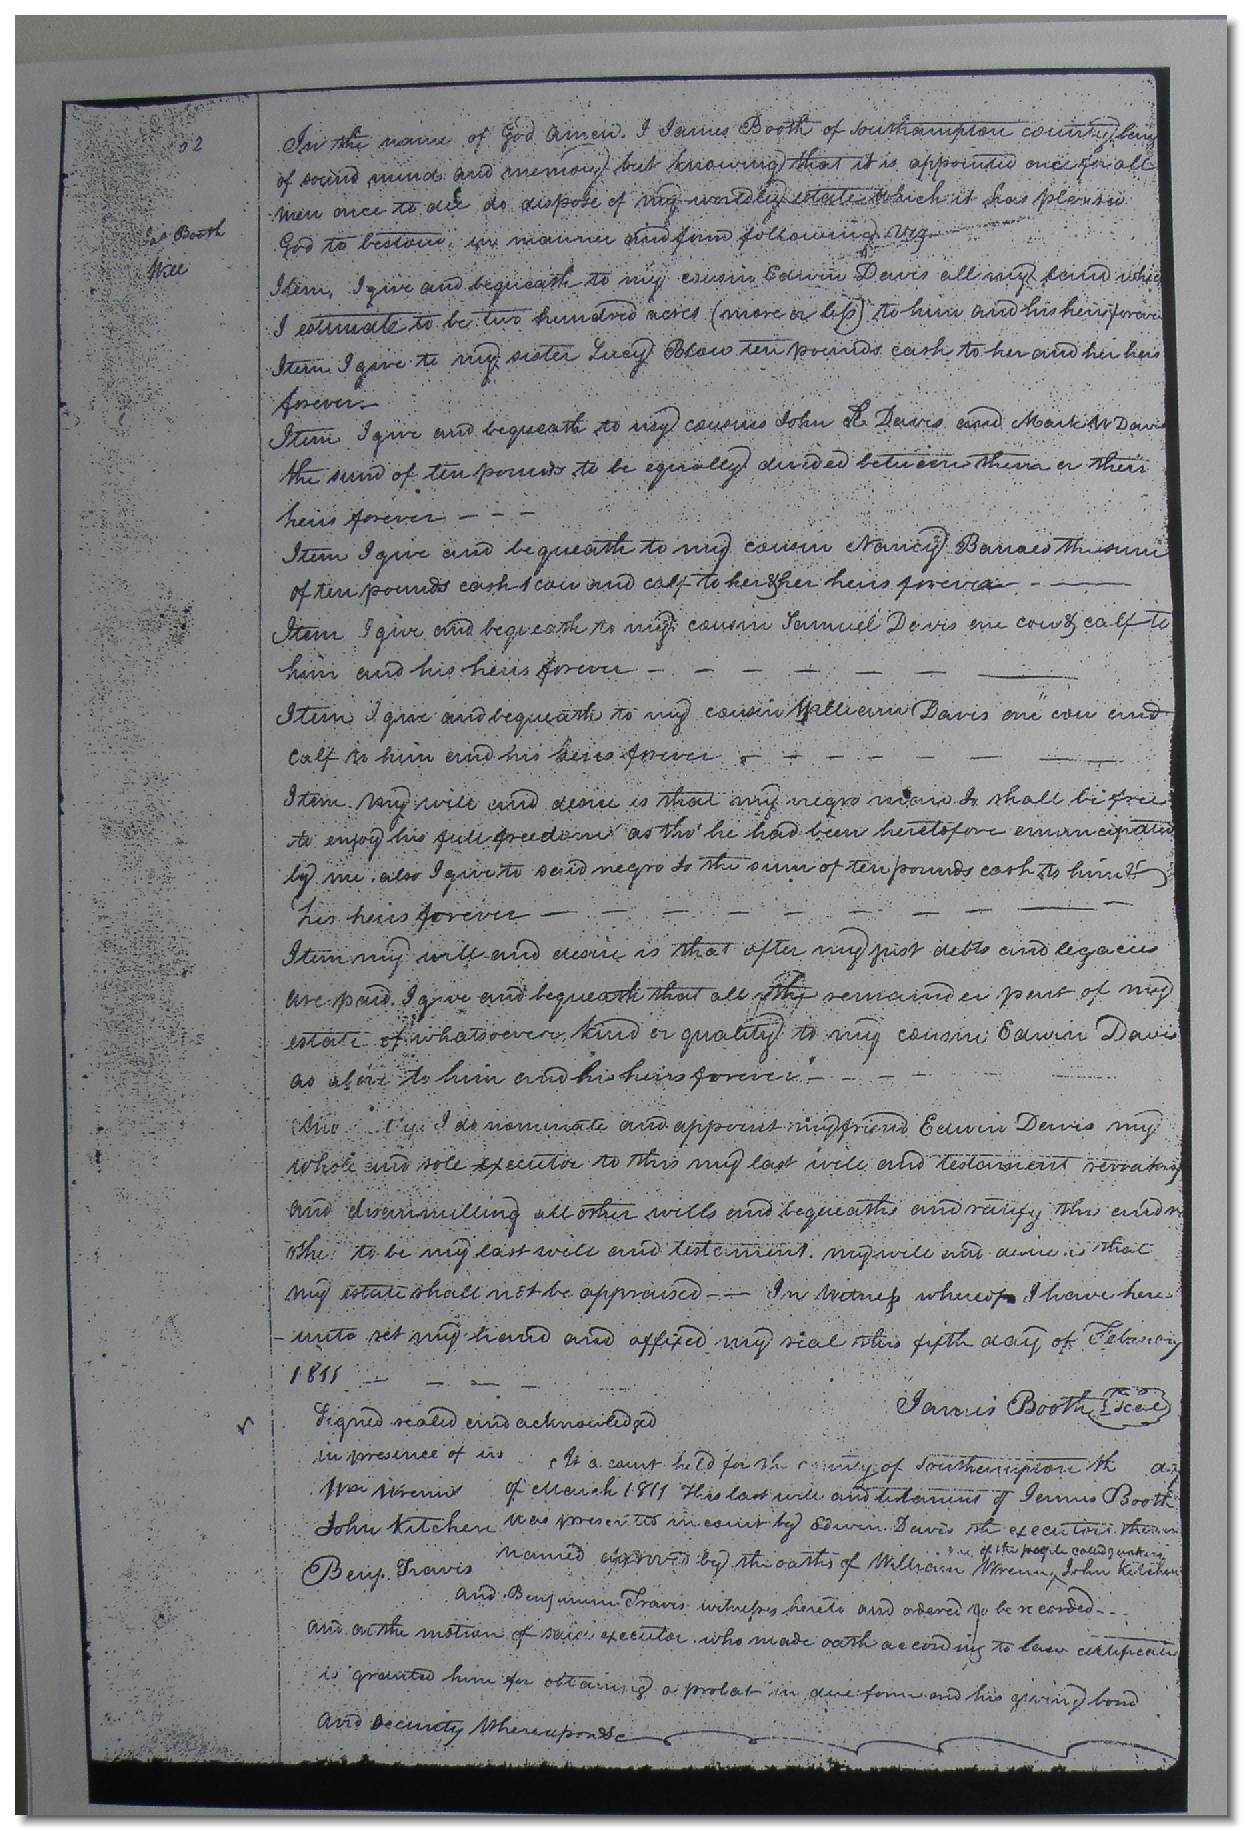 52
Jas Booth
Will
In the name of God Amen. I James Booth of Southampton county being
of sound mind and memory but knowing that it is appointed once for all
men once to die do dispose of my worldly estate which it has pleased
God to bestow, in manner and form following Viz
Item, I give and bequeath to my cousin Edwin Davis all my land which
I estimate to be two hundred acres (more or less) to him and his heirs forever
Item I give to my sister Lucy Blow ten pounds cash to her and her heirs
forever.
Item I give and bequeath to my cousins John Davis and Mark W Davis
the sum of ten pounds to be equally divided between them or their
heirs forever - - -
Item I give and bequeath to my cousin Nancy the sum
of ten pounds cash 1 cow and calf to her & her heirs forever
Item I give and bequeath to my cousin Samuel Davis one cow & calf to
him and his heirs forever
Item I give and bequeath to my cousin William Davis one cow and
calf to him and his heirs forever
Item my will and desire is that my negro man shall be free
to enjoy his full freedom as tho' he had been heretofore emancipated
by me. also I give to said negro the sum of ten pounds cash to him &
his heirs forever
Item my will and desire is that after my just debts and legacies
are paid. I give and bequeath that all the remainder part of my
estate of whatsoever kind or quality to my cousin Edwin Davis
as above to him and his heirs forever
I do nominate and appoint my friend Edwin Davis my
whole and sole executor to this my last will and testament revoking
and disannulling all other wills and bequeaths and ratify this and no
other to be my last will and testament. my will and desire is that
my estate shall not be appraised -- In Witness whereof I have here
-unto set my hand and affixed my seal this fifth day of February
1811
James Booth Seal
Signed sealed and acknowledged
in presence of us
Wm Wrenn
John Kitchen
Benj. Travis
At a court held for the county of Southampton the day
of March 1811 This last will and testament of James Booth
was presented in court by Edwin Davis the executor therein
of the people called quakers
named proved by the oaths of William Wrenn, John Kitchen
and Benjamin Travis witnesses hereto and ordered to be recorded
And on the motion of said executor who made oath according to law certificate
is granted him for obtaining a probat in due form and his giving bond
and security whereupon &c